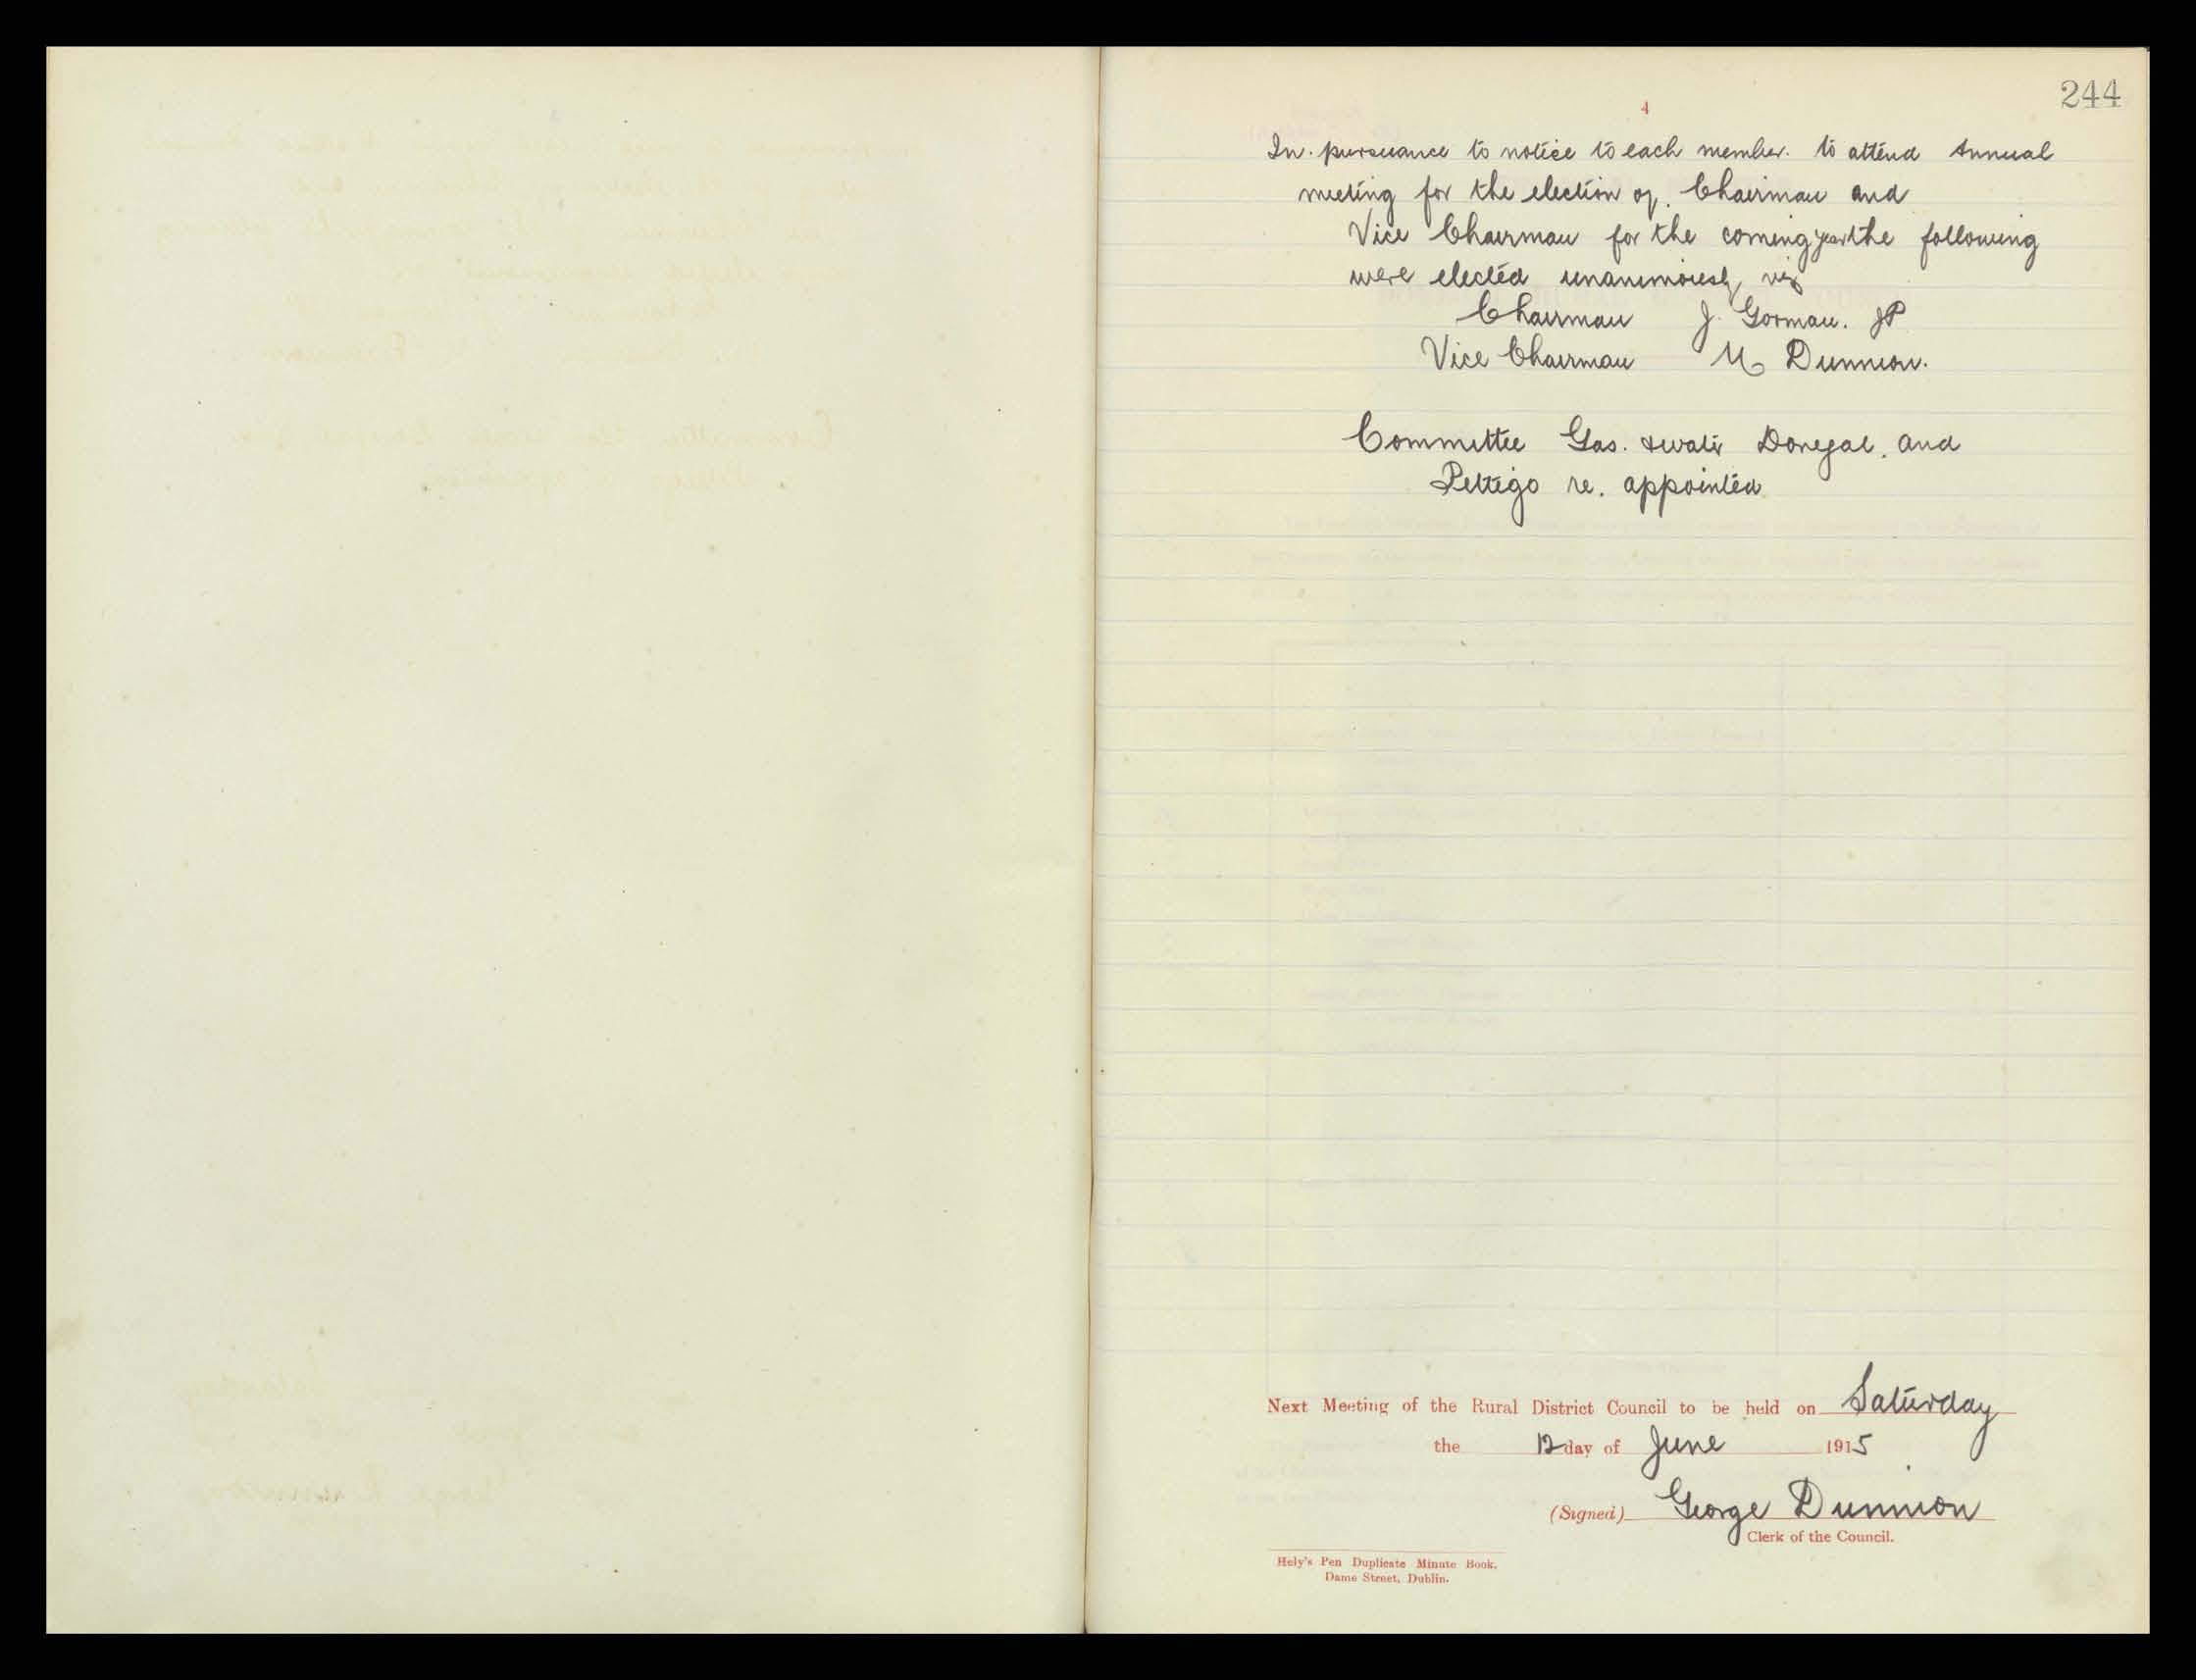 244
4
In. pursuance to notice to each member. to attend Annual
meeting for the election of. Chairman and
Vice Chairman for the coming year the following
were elected unanimously viz
Chairman J. Gorman. JP
Vice Chairman M Dunnion.
Committee Gas. & water Donegal. and
Pettigo re. appointed
Next Meeting of the Rural District Council to be held on Saturday
the 12 day of June 1915
(Signed) George Dunnion
Clerk of the Council.
Hely's Pen Duplicate Minute Book,
Dame Street, Dublin.